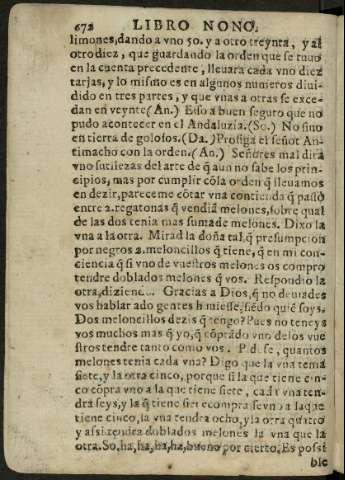 672 LIBRO NONO.
limones, dando a vno 50. y a otro treynta, y al
otro diez, que guardando la orden que se tuuo
en la cuenta precedente, lleuara cada vno diez
tarjas, y lo mismo es en algunos numeros diui-
dido en tres partes, y que vnas a otras se exce-
dan en veynte (An.) Esso a buen seguro que no
pudo acontecer en el Andaluzia. (So.) No sino
en tierra de golosos. (Da.) Prosiga el señor An-
timacho con la orden. (An.) Señores mal dira
vno sutilezas del arte de q̃ aun no sabe los prin-
cipios, mas por cumplir cõ la orden q̃ lleuamos
en dezir, pareceme cõtar vna contienda q̃ passò
entre 2. regatonas q̃ vendiã melones, sobre qual
de las dos tenia mas suma de melones. Dixo la
vna a la otra. Mirad la doña tal, q̃ presumpcion
por negros 2. meloncillos q̃ tiene, q̃ en mi con-
ciencia q̃ si vno de vuestros melones os compro
tendre doblados melones q̃ vos. Respondio la
otra, diziene... Gracias a Dios, q̃ no deuiades
vos hablar ado gentes huuiesse, siẽdo quiẽ soys.
Dos meloncillos dezis q̃ tengo? Pues no teneys
vos muchos mas q̃ yo, q̃ cõprãdo vno de los vue
stros tendre tanto como vos. Pidese, quantos
melones tenia cada vna? Digo que la vna tenia
siete, y la otra cinco, porque si la que tiene cin-
co cõpra vno a la que tiene siete, cada vna ten-
dra seys, y la q̃ tiene siete compra se vno a la que
tiene cinco, la vna tendra ocho, y la otra quatro
y assi tendra doblados melones la vna que la
otra. So. ha, ha, ha, ha, bueno por cierto. Es possi
ble